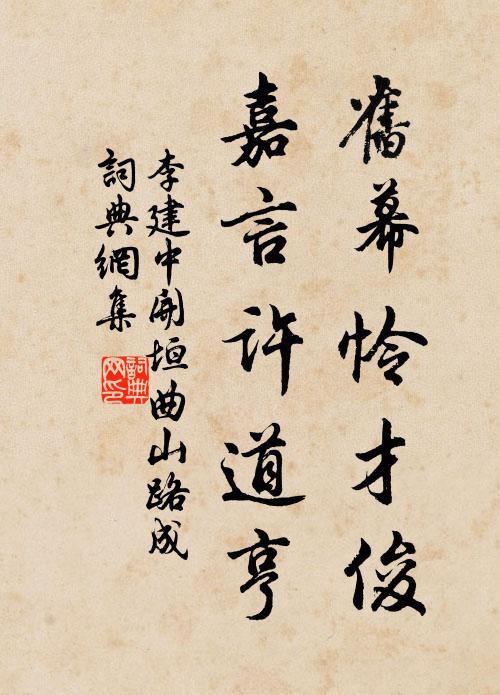 舊幕怜才俊
嘉言許道亨
李建中開垣曲山路成
詞典網集
詞典网印